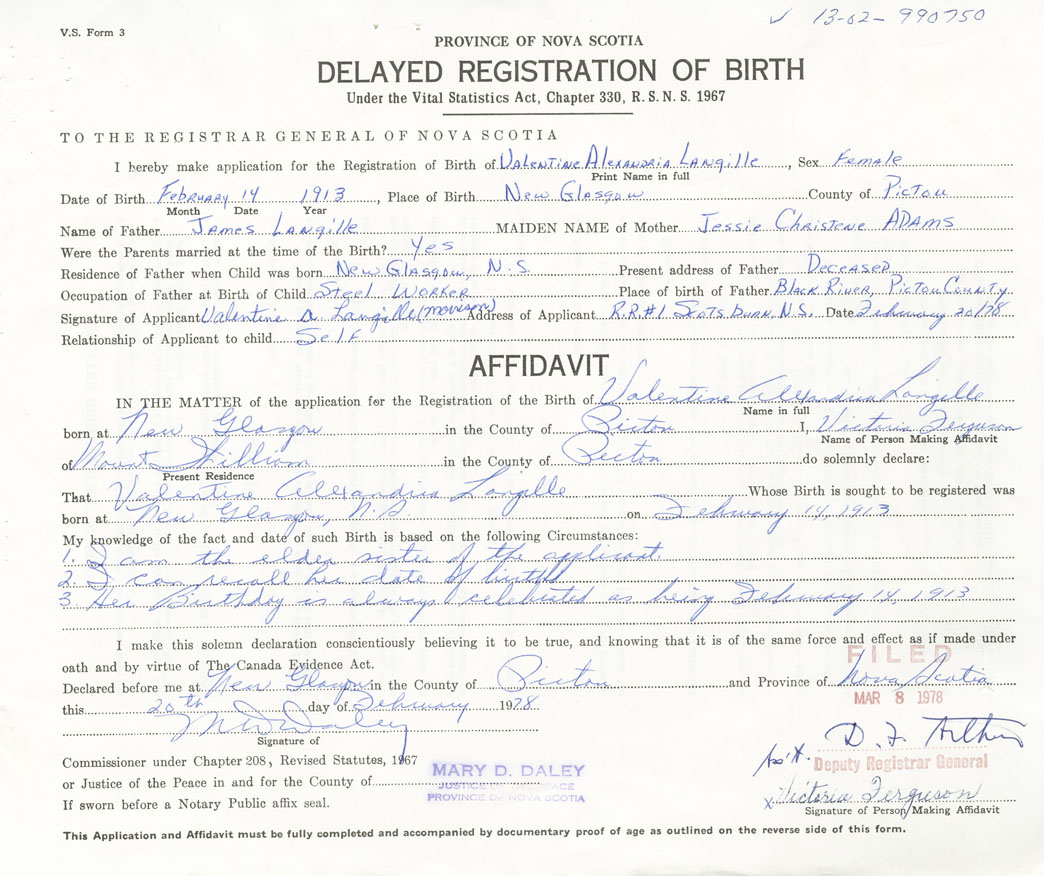 ✓ 13-02-990750
V.S. Form 3
PROVINCE OF NOVA SCOTIA
DELAYED REGISTRATION OF BIRTH
Under the Vital Statistics Act, Chapter 330, R. S. N. S. 1967
TO THE REGISTRAR GENERAL OF NOVA SCOTIA
I hereby make application for the Registration of Birth of Valentine Alexandria Langille, Sex Female
Print Name in full
Date of Birth February 14 1913, Place of Birth New Glasgow County of Pictou
Month Date Year
Name of Father James Langille MAIDEN NAME of Mother Jessie Christene ADAMS
Were the Parents married at the time of the Birth? Yes
Residence of Father when Child was born New Glasgow, N.S. Present address of Father Deceased
Occupation of Father at Birth of Child Steel Worker Place of birth of Father Black River, Pictou County
Signature of Applicant Valentine A Langille (Morrison) Address of Applicant R.R.#1 Scotsburn, N.S. Date February 20/78
Relationship of Applicant to child Self
AFFIDAVIT
IN THE MATTER of the application for the Registration of the Birth of Valentine Alexandria Langille
Name in full
born at New Glasgow in the County of Pictou I, Victoria Ferguson
Name of Person Making Affidavit
of Mount William in the County of Pictou do solemnly declare:
Present Residence
That Valentine Alexandria Langille Whose Birth is sought to be registered was
born at New Glasgow, N.S. on February 14, 1913
My knowledge of the fact and date of such Birth is based on the following Circumstances:
1. I am the elder sister of the applicant.
2. I can recall her date of birth
3. Her Birthday is always celebrated as being February 14, 1913
I make this solemn declaration conscientiously believing it to be true, and knowing that it is of the same force and effect as if made under
oath and by virtue of The Canada Evidence Act.
FILED
Declared before me at New Glasgow in the County of Pictou and Province of Nova Scotia
MAR 8 1978
this 20th day of February 1978
M D Daley
Signature of
Commissioner under Chapter 208, Revised Statutes, 1967
or Justice of the Peace in and for the County of
If sworn before a Notary Public affix seal.
MARY D. DALEY
JUSTICE OF THE PEACE
PROVINCE OF NOVA SCOTIA
Ass't. Deputy Registrar General
x Victoria Ferguson
Signature of Person Making Affidavit
This Application and Affidavit must be fully completed and accompanied by documentary proof of age as outlined on the reverse side of this form.